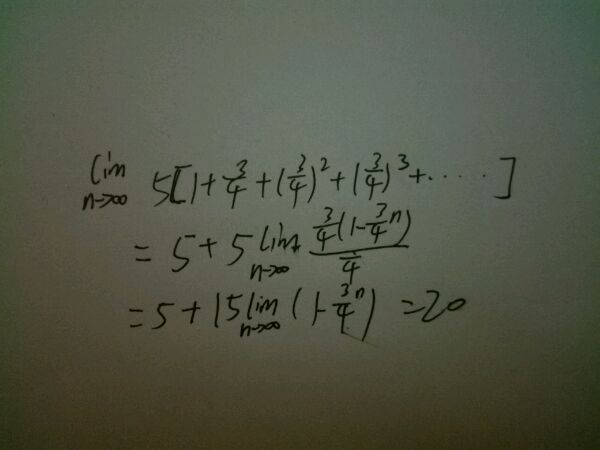 lim n→∞ 5[1+3/4+(3/4)²+(3/4)³+·····]
=5+5 lim n→∞ 3/4(1-3/4ⁿ)/(1/4)
=5+15 lim n→∞ (1-3/4ⁿ) =20